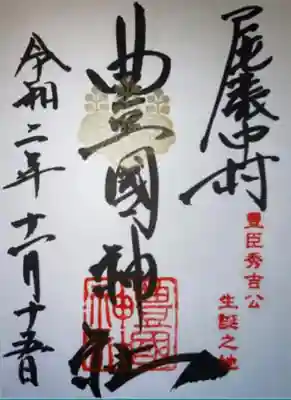 尾張中村
豊臣秀吉公
生誕之地
豊國神社
豊國
神社
令和二年十一月十五日